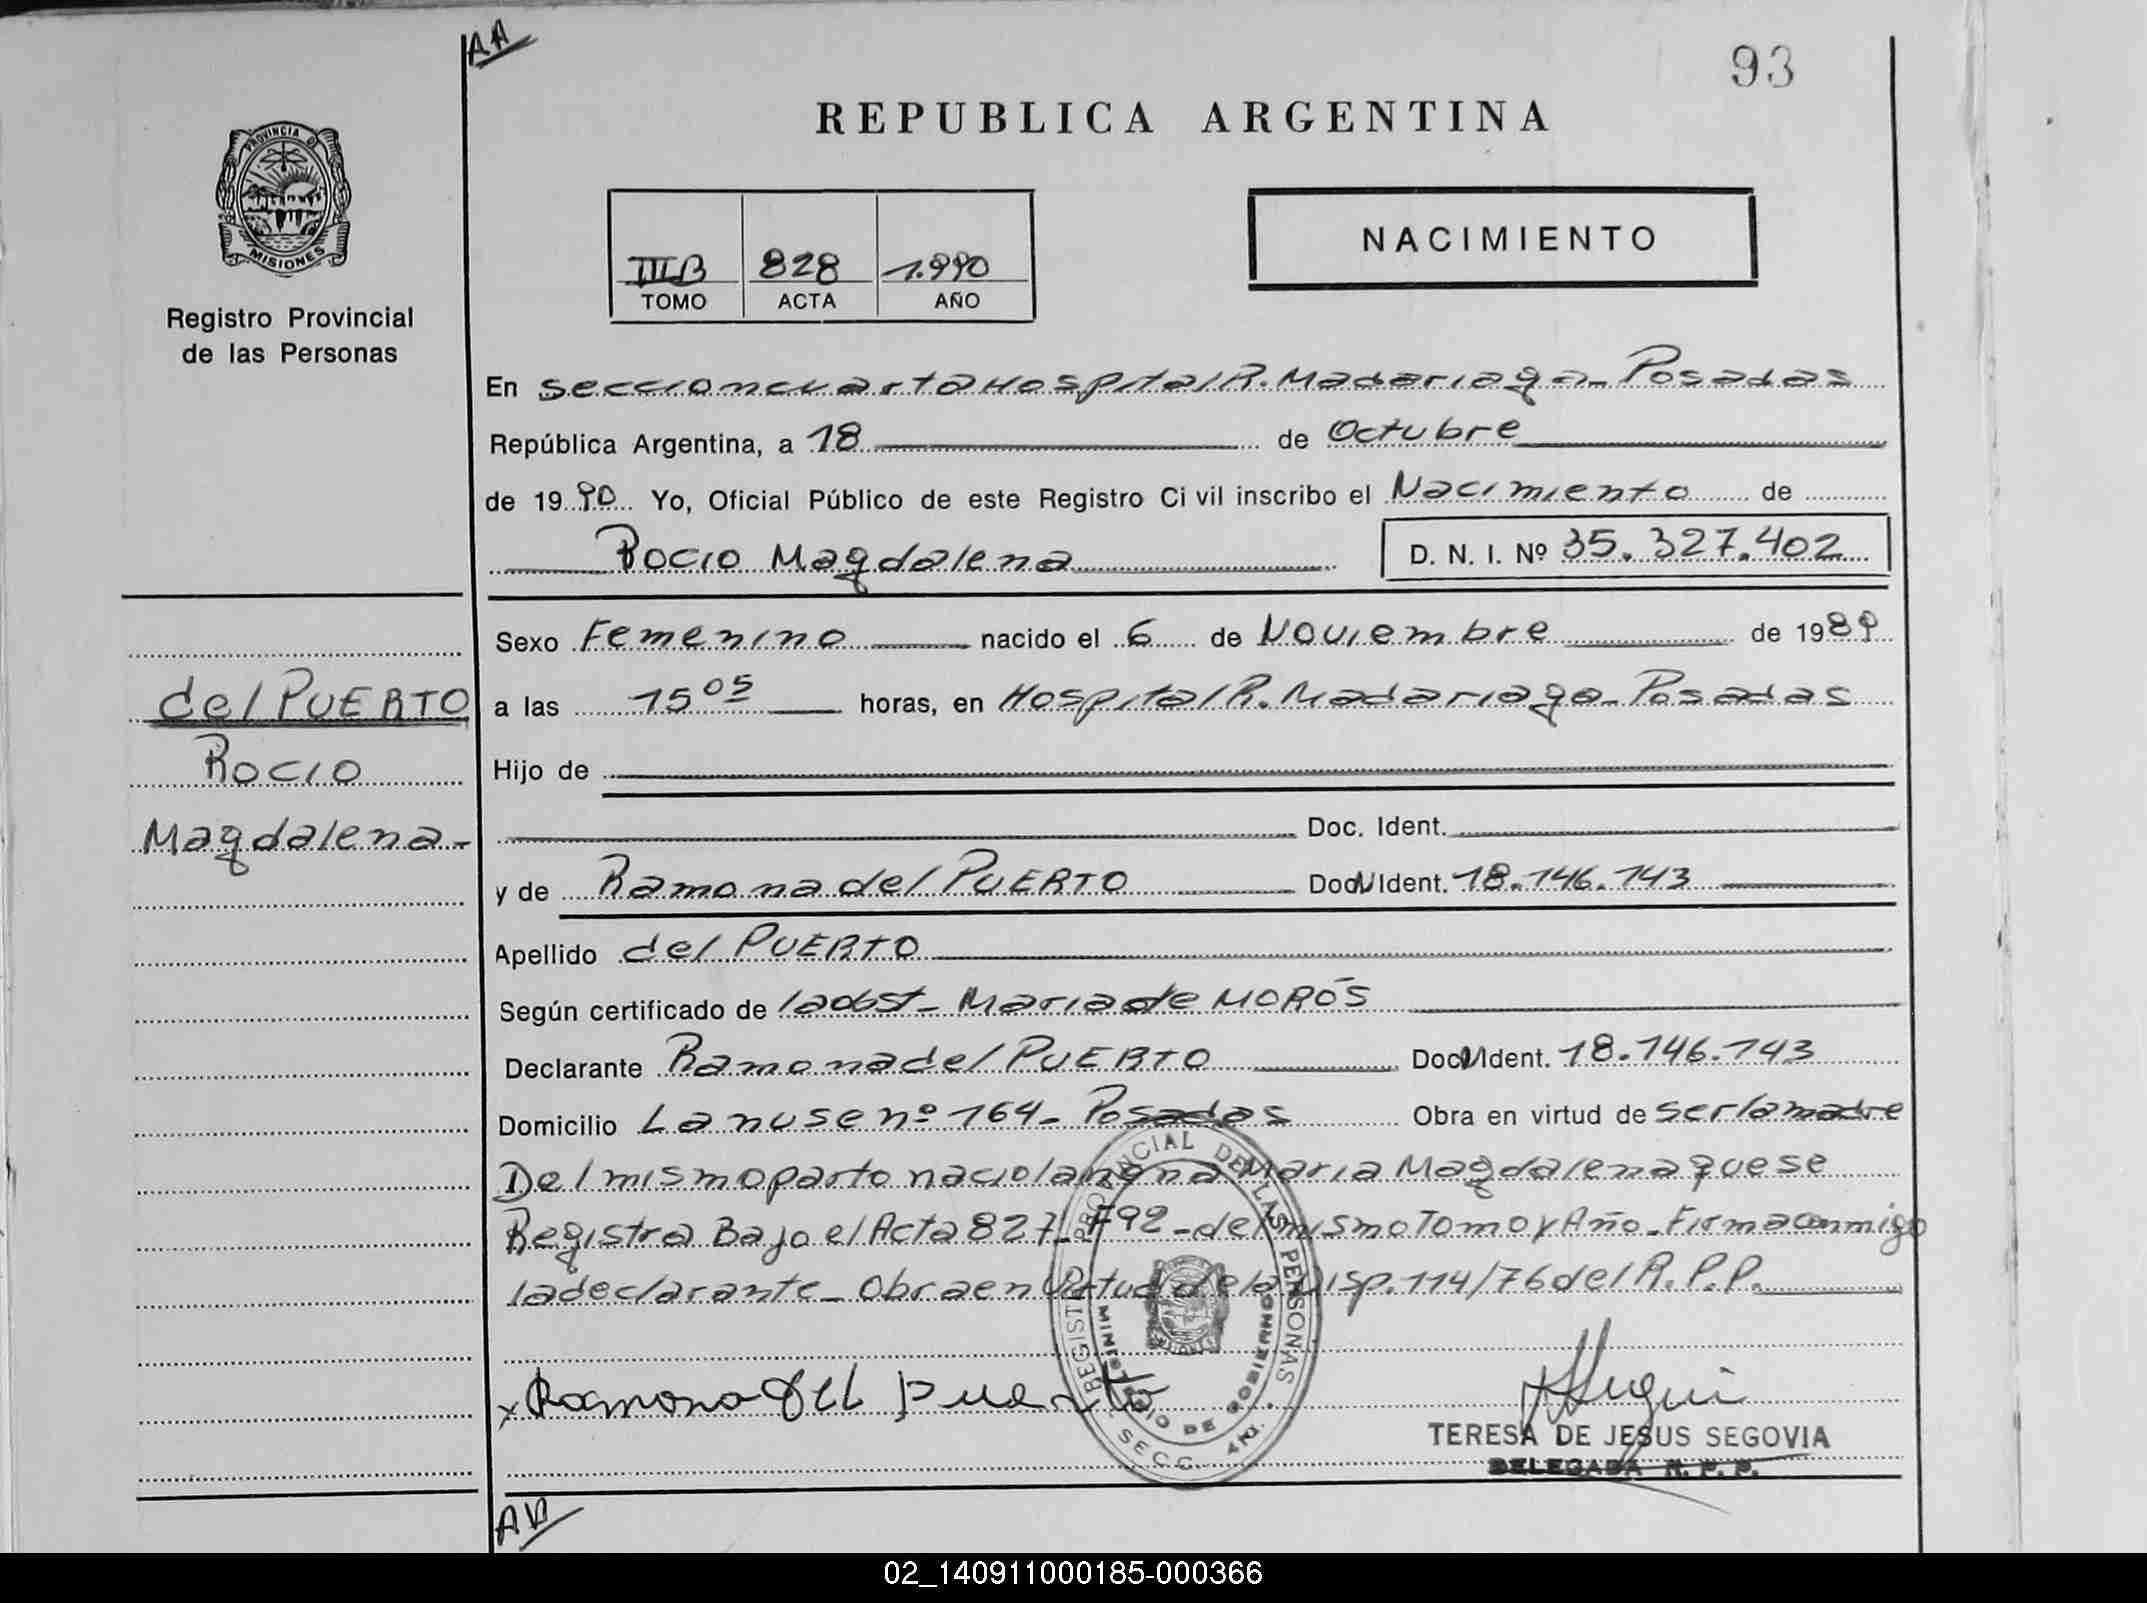 AA
93
REPUBLICA ARGENTINA
PROVINCIA DE
MISIONES
Registro Provincial
de las Personas
IIIB 828 1.990
TOMO ACTA AÑO
NACIMIENTO
En seccion cuarta Hospital R. Madariaga - Posadas
República Argentina, a 18 de Octubre
de 19 90 Yo, Oficial Público de este Registro Ci vil inscribo el Nacimiento de
Rocio Magdalena D. N. I. Nº 35.327.402
Sexo Femenino nacido el 6 de Noviembre de 1989
a las 15 05 horas, en Hospital R. Madariaga - Posadas
Hijo de
Doc. Ident.
y de Ramona del PUERTO Doc N Ident. 18.146.143
Apellido del PUERTO
Según certificado de la obst - Maria de MOROS
Declarante Ramona del PUERTO Doc N Ident. 18.146.143
Domicilio Lanuse nº 164 - Posadas Obra en virtud de ser la madre
Del mismo parto nacio la nena Maria Magdalena que se
Registra Bajo el Acta 827 - F 92 - del mismo Tomo y Año - Firma conmigo
la declarante - Obra en Virtud de la Disp. 114/76 del R.P.P.
del PUERTO
Rocio
Magdalena -
REGISTRO PROVINCIAL DE LAS PERSONAS
MINISTERIO DE GOBIERNO
SECC. 4a.
x Ramona del puerto
TERESA DE JESUS SEGOVIA
DELEGADA R. P. P.
02_140911000185-000366